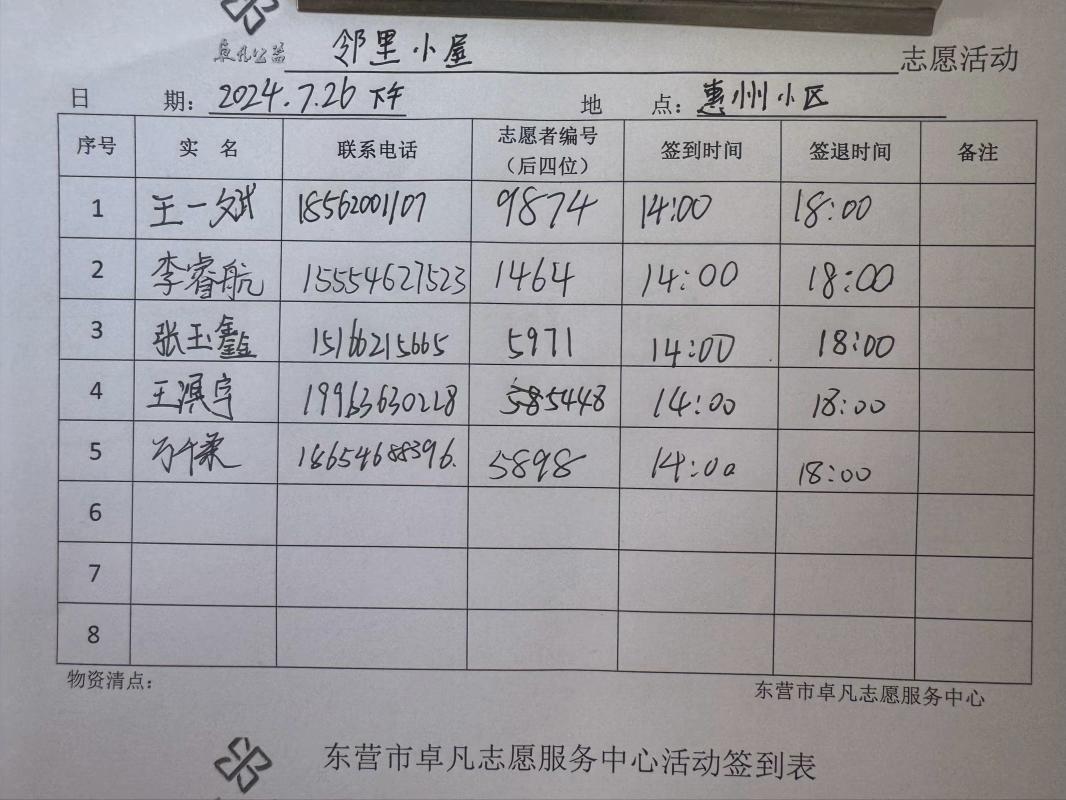 卓凡公益 邻里小屋 志愿活动
日 期: 2024.7.26 下午 地 点: 惠州小区
序号 实 名 联系电话 志愿者编号（后四位） 签到时间 签退时间 备注
1 王一斌 18562001107 9874 14:00 18:00
2 李睿航 15554627523 1464 14:00 18:00
3 张玉鑫 15166215665 5971 14:00 18:00
4 王淏宇 19963630228 5448 14:00 18:00
5 万千柔 18654688396. 5898 14:00 18:00
6
7
8
物资清点: 东营市卓凡志愿服务中心
东营市卓凡志愿服务中心活动签到表